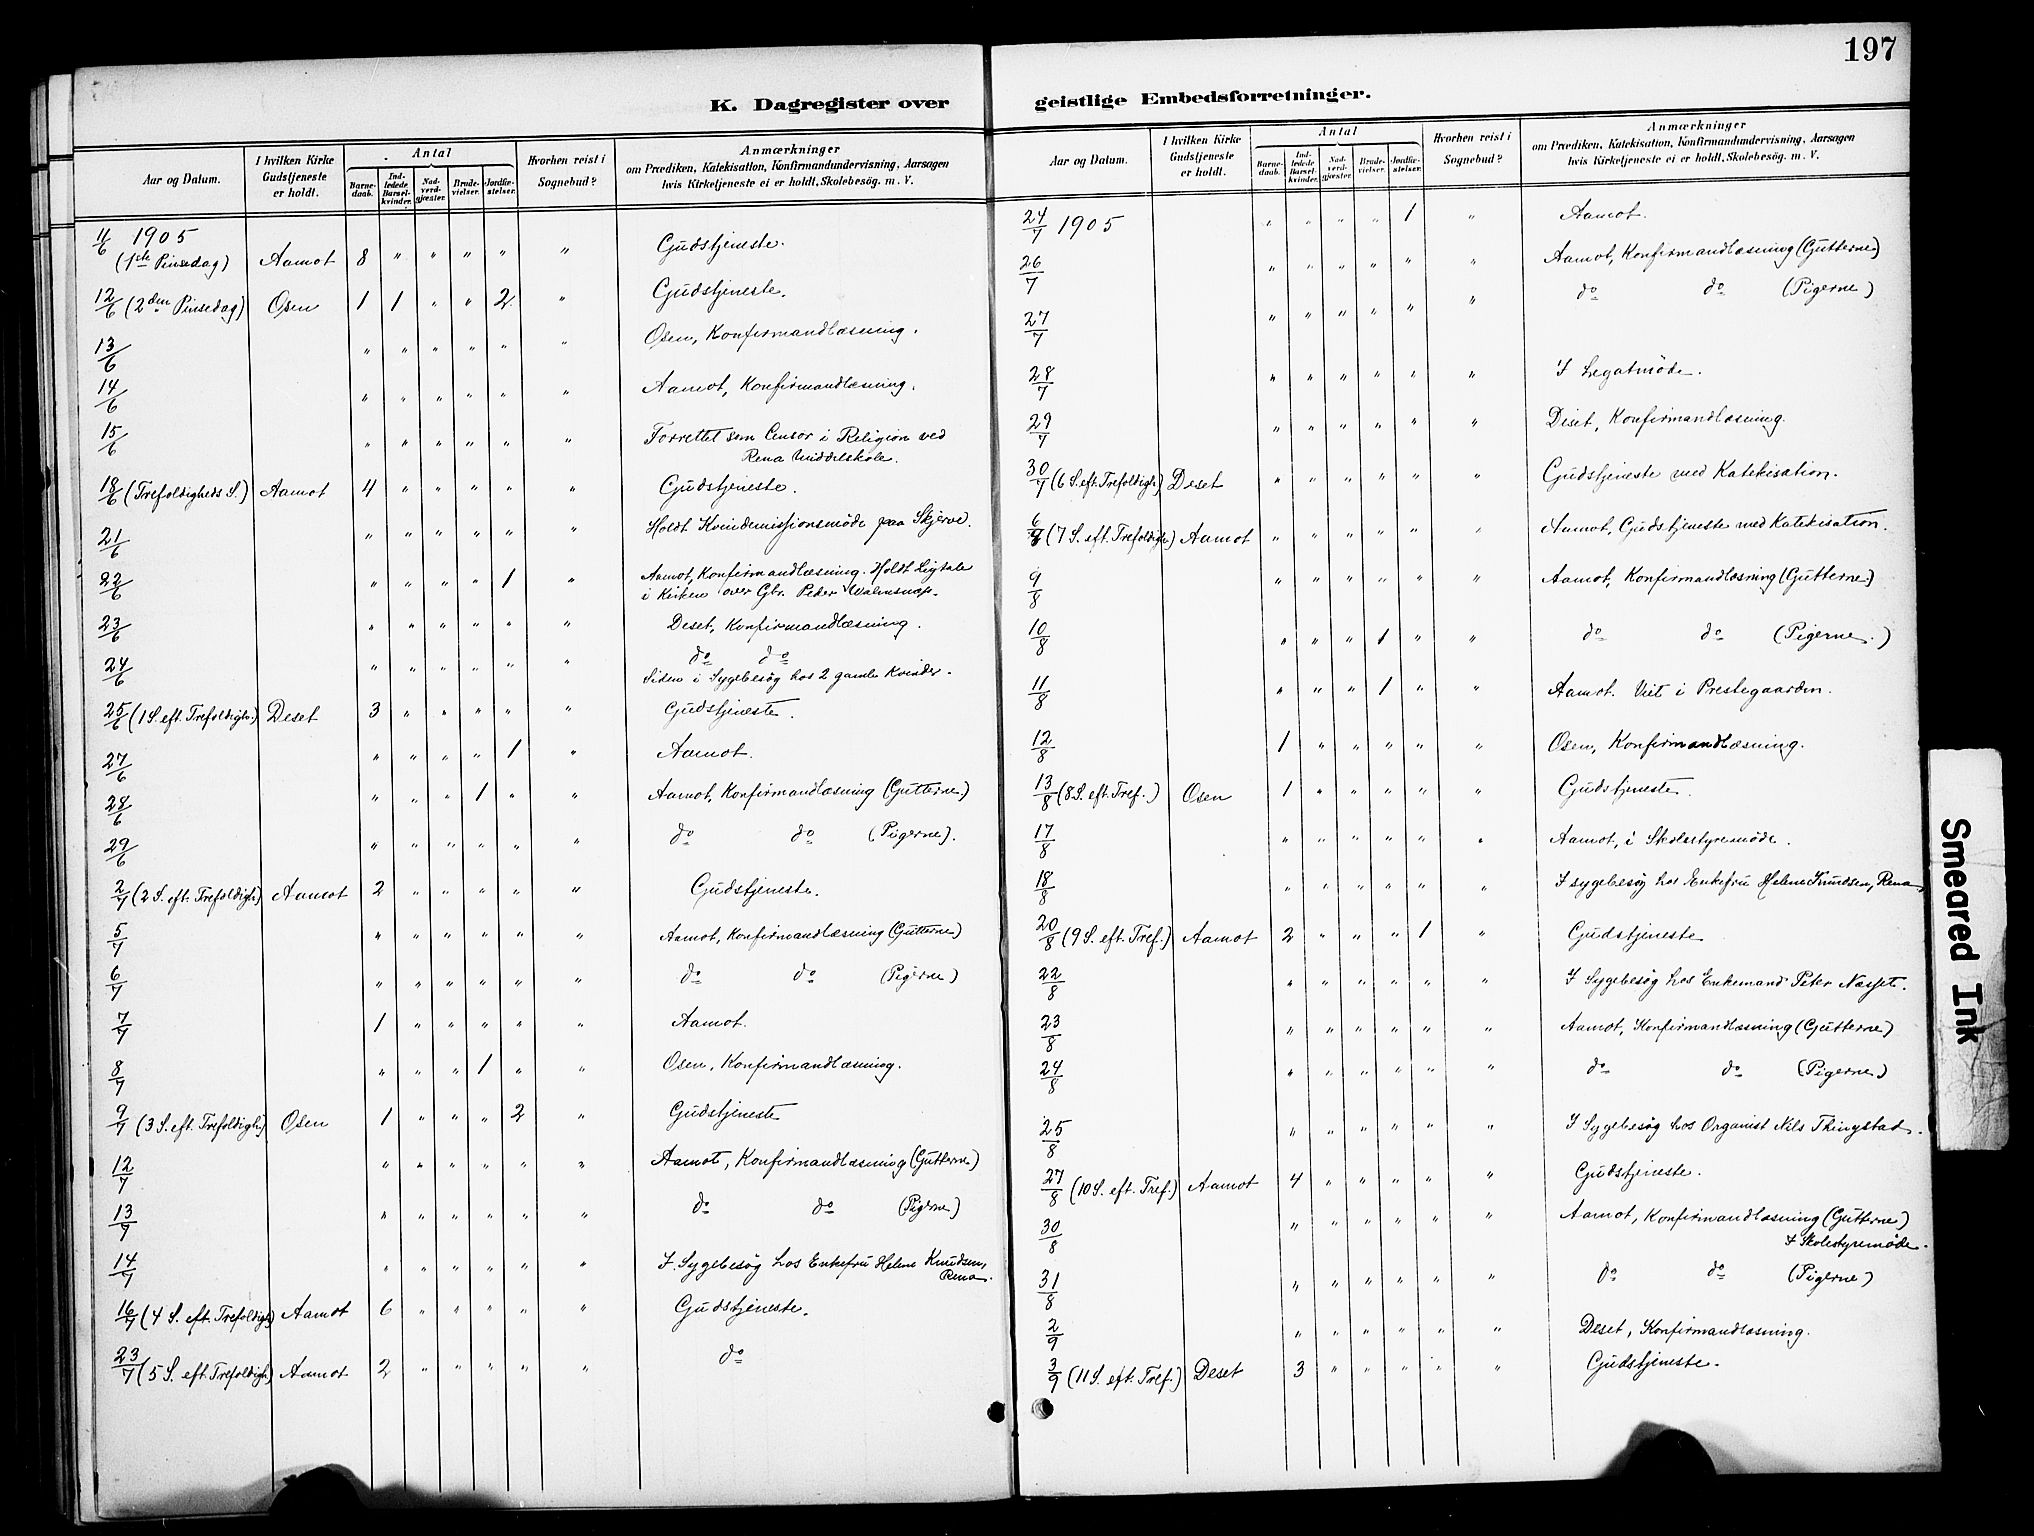 197
K. Dagregister over
Aar og Datum.
I hvilken Kirke Gudstjeneste er holdt.
Antal
Barne-daab.
Ind-ledede Barsel-kvinder.
Nad-verd-gjæster.
Brude-vielser.
Jordfæ-stelser.
Hvorhen reist i Sognebud?
Anmærkninger
om Prædiken, Katekisation, Konfirmandundervisning, Aarsagen
hvis Kirketjeneste ei er holdt, Skolebesög. m. V.
11/6 1905 (1ste Pinsedag) Aamot 8 " " " " " Gudstjeneste.
12/6 (2den Pinsedag) Osen 1 1 " " 2 " Gudstjeneste.
13/6 " " " " " " Osen, Konfirmandlæsning.
14/6 " " " " " " Aamot, Konfirmandlæsning.
15/6 " " " " " " Forrettet som Censor i Religion ved
Rena Middelskole.
18/6 (Trefoldigheds S.) Aamot 4 " " " " " Gudstjeneste.
21/6 " " " " " " Holdt Kvindemissionsmöde paa Skjerve.
22/6 " " " " 1 " Aamot, Konfirmandlæsning. Holdt Ligtale
i Kirken over Gbr. Peder
23/6 " " " " " " Deset, Konfirmandlæsning.
24/6 " " " " " " do do
Siden i Sygebesög hos 2 gamle Kvinder.
25/6 (1 S. eft. Trefoldigh.) Deset 3 " " " " " Gudstjeneste.
27/6 " " " " 1 " Aamot.
28/6 " " " 1 " " Aamot, Konfirmandlæsning (Gutterne)
29/6 " " " " " " do do (Pigerne).
2/7 (2 S. eft. Trefoldigh.) Aamot 2 " " " " " Gudstjeneste.
5/7 " " " " " " Aamot, Konfirmandlæsning (Gutterne)
6/7 " " " " " " do do (Pigerne)
7/7 1 " " " " " Aamot.
8/7 " " " 1 " " Osen, Konfirmandlæsning.
9/7 (3 S. eft. Trefoldigh.) Osen 1 " " " 2 " Gudstjeneste
12/7 " " " " " " Aamot, Konfirmandlæsning (Gutterne)
13/7 " " " " " " do do (Pigerne)
14/7 " " " " " " I Sygebesög hos Enkefru Helene Knudsen,
Rena.
16/7 (4 S. eft. Trefoldigh.) Aamot 6 " " " " " Gudstjeneste.
23/7 (5 S. eft. Trefoldigh.) Aamot 2 " " " " " do
geistlige Embedsforretninger.
Aar og Datum.
I hvilken Kirke Gudstjeneste er holdt.
Antal
Barne-daab.
Ind-ledede Barsel-kvinder.
Nad-verd-gjæster.
Brude-vielser.
Jordfæ-stelser.
Hvorhen reist i Sognebud?
Anmærkninger
om Prædiken, Katekisation, Konfirmandundervisning, Aarsagen
hvis Kirketjeneste ei er holdt, Skolebesög. m. V.
24/7 1905 " " " " 1 " Aamot.
26/7 " " " " " " Aamot, Konfirmandlæsning (Gutterne)
27/7 " " " " " " do do (Pigerne)
28/7 " " " " " " I Legatmöde.
29/7 " " " " " " Deset, Konfirmandlæsning.
30/7 (6 S. eft. Trefoldigh.) Deset " " " " " " Gudstjeneste med Katekisation.
6/8 (7 S. eft. Trefoldigh.) Aamot " " " " " " Aamot, Gudstjeneste med Katekisation.
9/8 " " " " " " Aamot, Konfirmandlæsning (Gutterne)
10/8 " " " 1 " " do do (Pigerne.)
11/8 " " " 1 " " Aamot. Viet i Prestegaarden.
12/8 1 " " " " " Osen, Konfirmandlæsning.
13/8 (8 S. eft. Tref.) Osen 1 " " " " " Gudstjeneste.
17/8 " " " " " " Aamot, i Skolestyremöde.
18/8 " " " " " " I sygebesög hos Enkefru Helene Knudsen, Rena.
20/8 (9 S. eft. Tref.) Aamot 2 " " " 1 " Gudstjeneste
22/8 " " " " " " I Sygebesög hos Enkemand Peter Næsset.
23/8 " " " " " " Aamot, Konfirmandlæsning (Gutterne)
24/8 " " " " " " do do (Pigerne)
25/8 " " " " " " I Sygebesög hos Organist Nils Thingstad.
27/8 (10 S. eft. Tref.) Aamot 4 " " " " " Gudstjeneste.
30/8 " " " " " " Aamot, Konfirmandlæsning (Gutterne)
I Skolestyremöde.
31/8 " " " " " " do do (Pigerne)
2/9 " " " " " " Deset, Konfirmandlæsning.
3/9 (11 S. eft. Tref.) Deset 3 " " " " " Gudstjeneste.
Smeared Ink